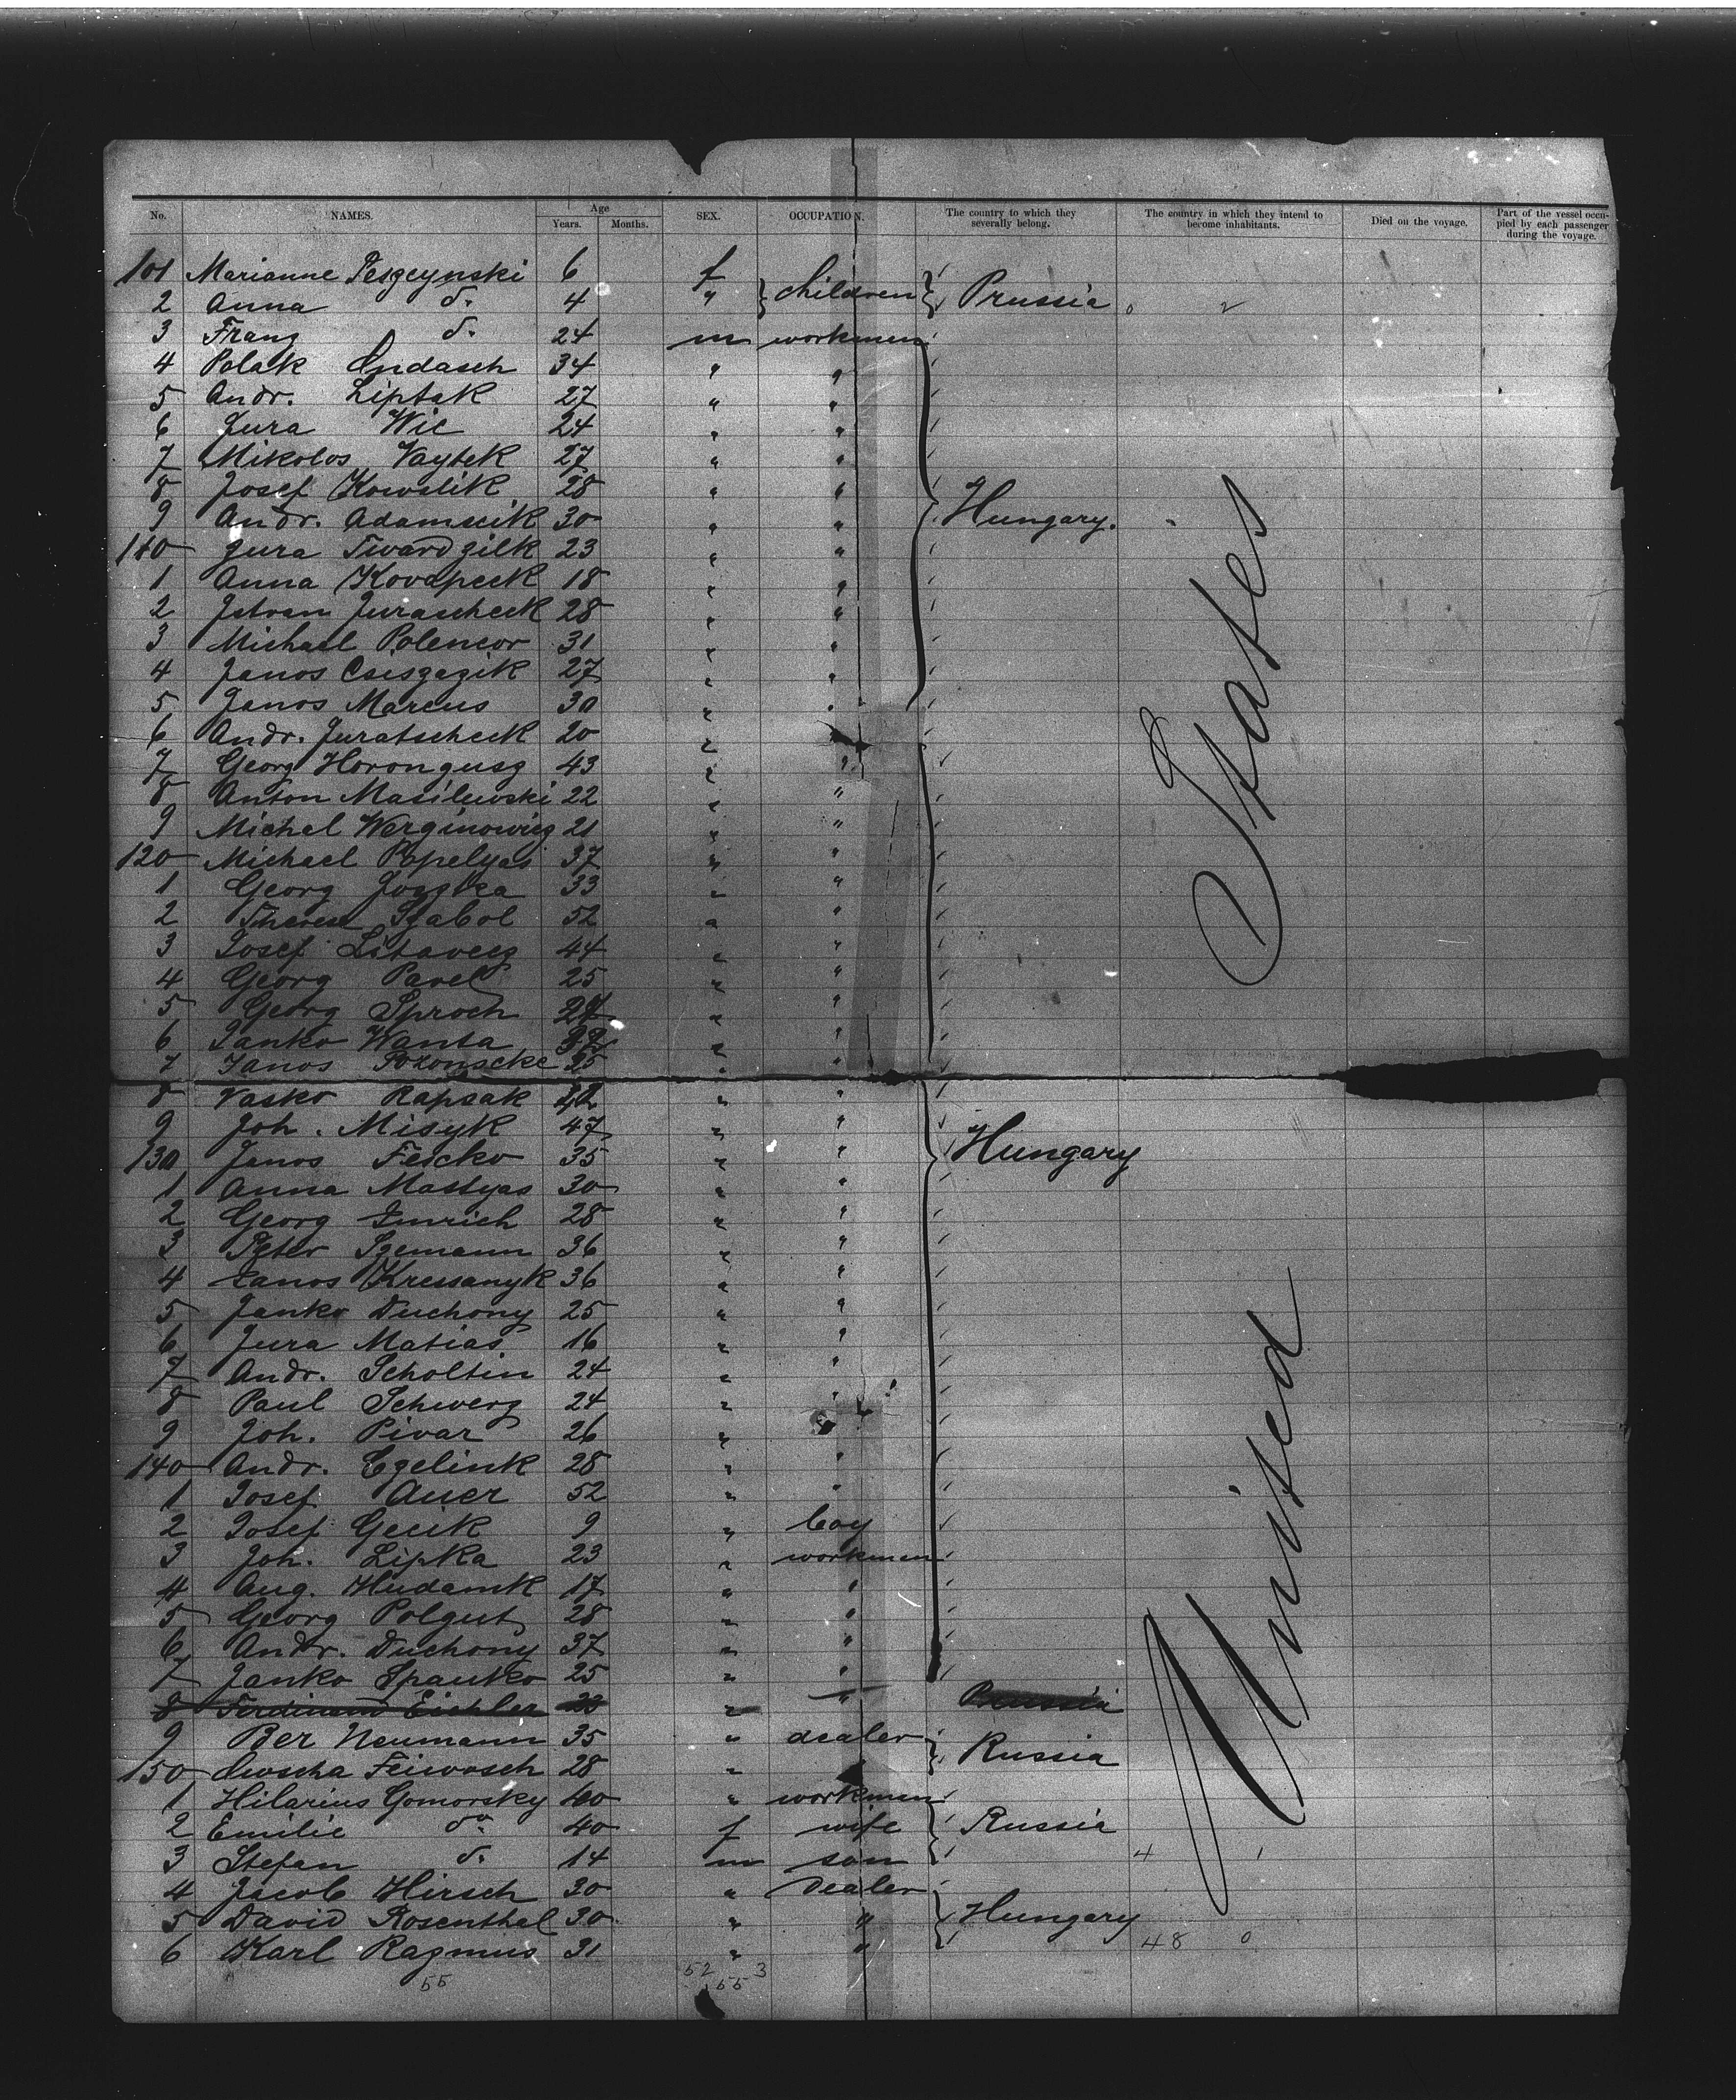 No. NAMES. Age Years. Months. SEX. OCCUPATION. The country to which they severally belong. The country in which they intend to become inhabitants. Died on the voyage. Part of the vessel occupied by each passenger during the voyage.
101 Marianne Peszcynski 6 f
2 Anna do. 4 " } children } Prussia 0 2
3 Franz do. 24 m workmen
4 Polak Ondasch 34 " "
5 Andr. Liptak 27 " "
6 Jura Wic 24 " "
7 Mikolos Vaytek 27 " "
8 Josef Kowalik 28 " "
9 Andr. Adamcik 30 " " Hungary. "
110 Jura Twardzilk 23 " "
1 Anna 18 " "
2 Istvan Jurascheck 28 " "
3 Michael Polencor 31 " "
4 Janos Csiszazik 27 " "
5 Janos Marcus 30 " "
6 Andr. Juratscheck 20 "
7 Georg 43 " "
8 Anton Masilewski 22 " "
9 Michel Werginowicz 21 " "
120 Michael Popelyas 37 " "
1 Georg 33 " "
2 Therese Szabol 52 " "
3 Josef Litavecz 44 " "
4 Georg Pavel 25 " "
5 Georg Sproch " "
6 Janko Wanta " "
7 Janos 25 " "
8 Vasko Rapsak 22 " "
9 Joh. Misyk 47 " " Hungary
130 Janos Fescko 35 " "
1 Anna Mattyas 30 " "
2 Georg Imrich 28 " "
3 Peter Szemann 36 " "
4 Janos Kressanyk 36 " "
5 Janko Duchony 25 " "
6 Jura Matias 16 " "
7 Andr. Scholtin 24 " "
8 Paul Schwerg 24 " "
9 Joh. Pivar 26 "
140 Andr. Egelink 28 " "
1 Josef Auer 52 " "
2 Josef Gecik 9 " boy
3 Joh. Lipka 23 " workmen
4 Aug. Hudamk 17 " "
5 Georg Polgut 28 " "
6 Andr. Duchony 37 " "
7 Janko Spanko 25 " "
8 Ferdinand Eichler 22 " " Prussia
9 Ber Neumann 35 " dealer } Russia
150 Feiwosch 28 "
1 Hilarius Gomorsky 40 " workmen
2 Emilie do. 40 f wife } Russia
3 Stefan do. 14 m son 4 1
4 Jacob Hirsch 30 " Dealer
5 David Rosenthal 30 " " } Hungary
6 Karl Ragmus 31 " " 48 0
55 52 3
55
United States